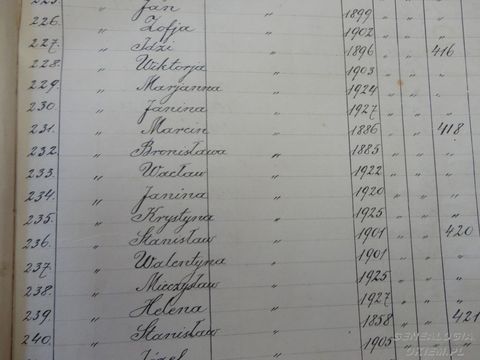 225. Jan " 1899 " "
226. " Zofja " 1902 " "
227. " Idzi " 1896 " " 416
228. " Wiktorja " 1903 " "
229. " Marjanna " 1924 " "
230. " Janina " 1927 " "
231. " Marcin " 1886 " " 418
232. " Bronisława " 1885 " "
233. " Wacław " 1922 " "
234. " Janina " 1920 " "
235. " Krystyna " 1925 " "
236. " Stanisław " 1901 " " 420
237. " Walentyna " 1901 " "
238. " Mieczysław " 1925 " "
239. " Helena " 1927 " "
240. " Stanisław " 1858 " " 421
Józef " 1905 " "
GENEALOGIA
OKIEM.PL